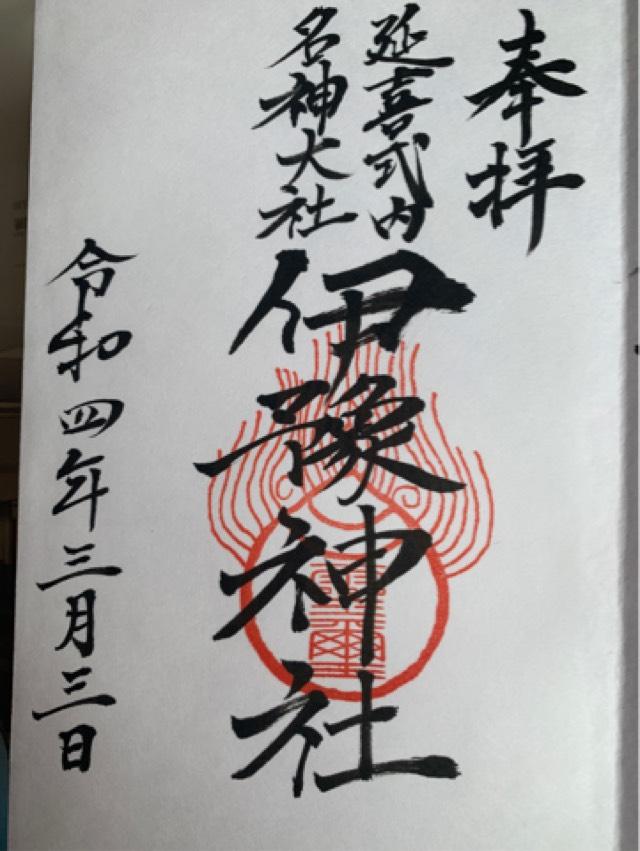 奉拝
延喜式内
名神大社
伊豫神社
令和四年三月三日